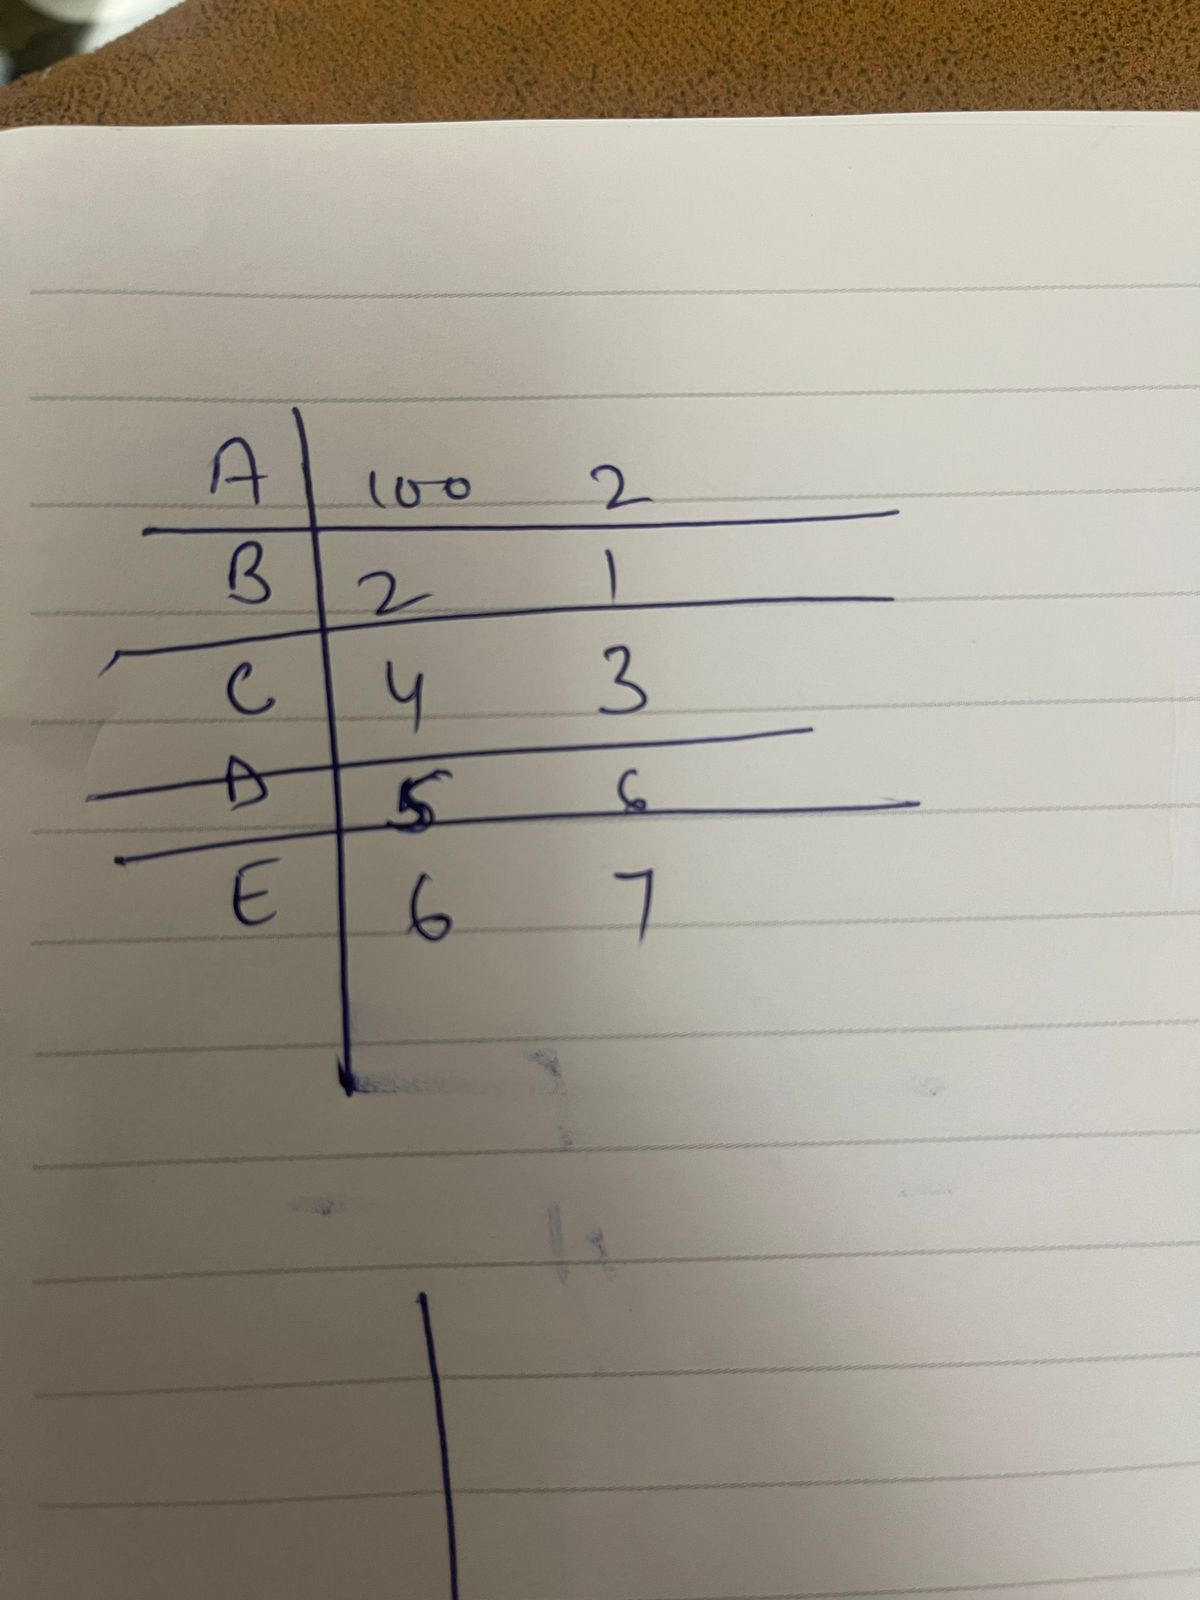 A 100 2
B 2 1
C 4 3
D 5 6
E 6 7